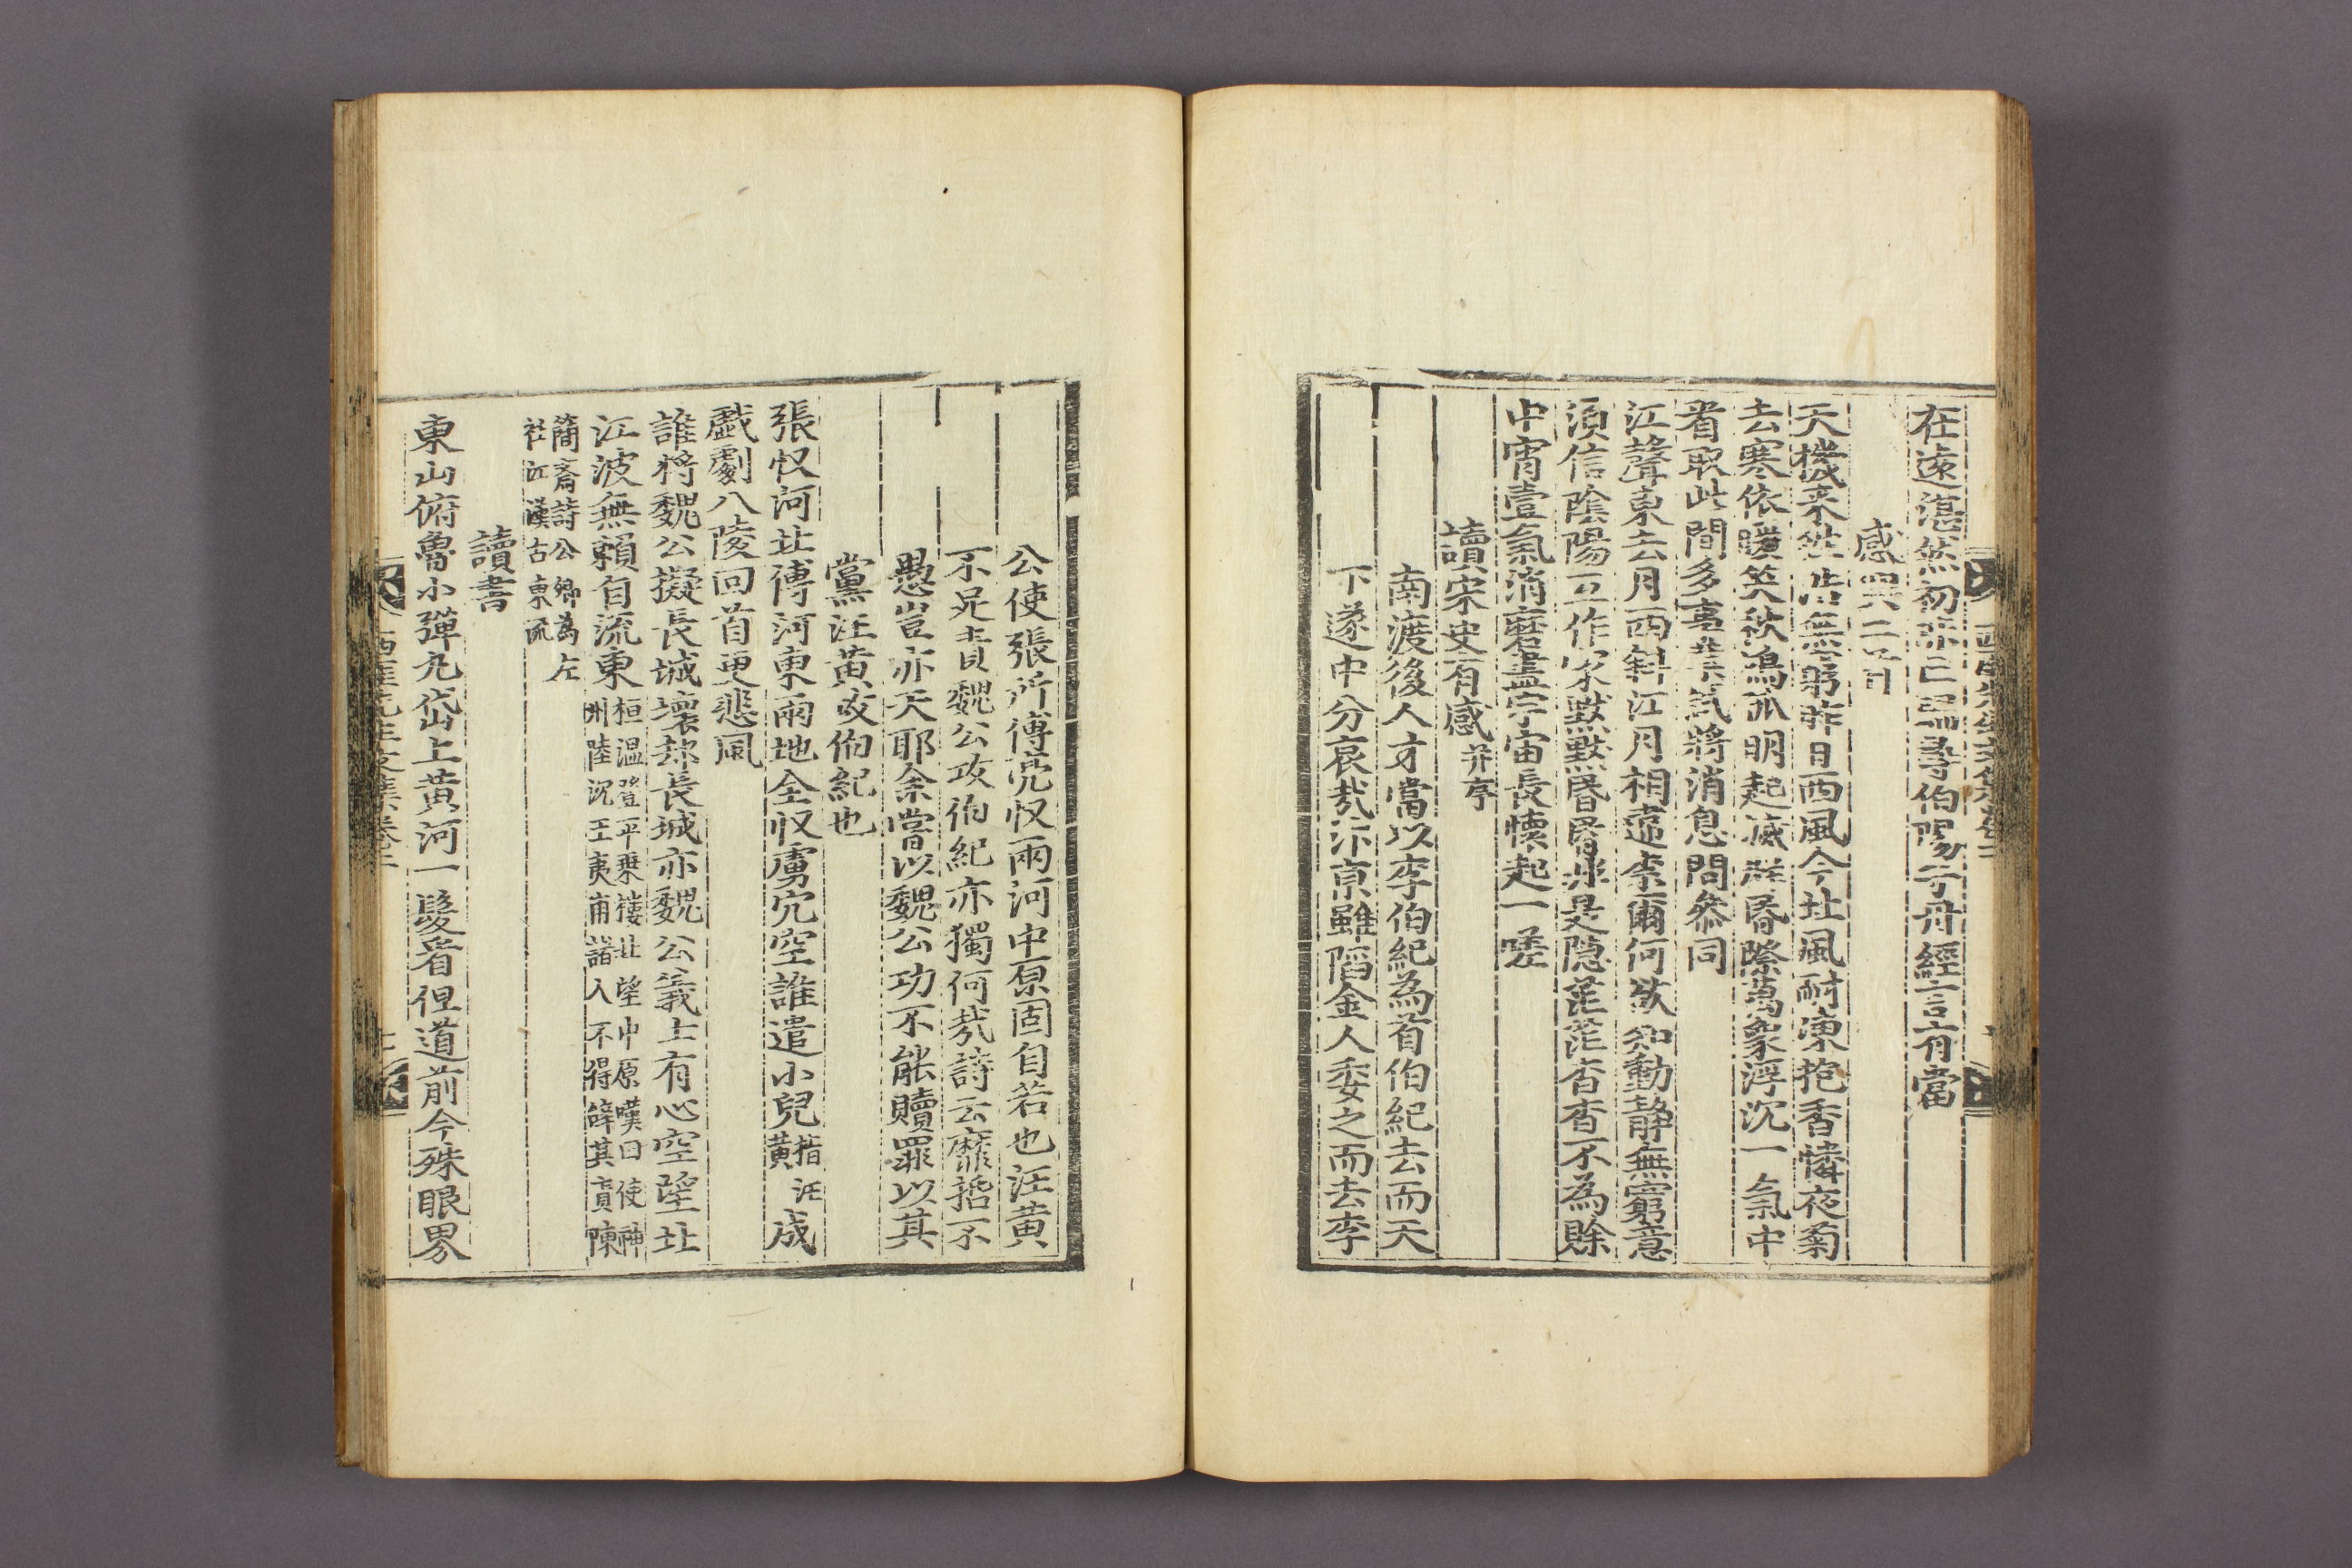 在遠湛然初亦已最尋伯陽子丹經言有當
感興二首
天機來徃浩無窮昨日西風今北風耐凍抱香憐夜菊
去寒依暖笑秋鴻孤明起滅群昏際萬象浮沉一氣中
看取此間多事業試將消息問叅同
江聲東去月西斜江月相違奈爾何欲知動靜無窮意
須信陰陽互作家默默昏昏非是隠茫茫杳杳不為賖
中宵壹氣消磨盡宇宙長懷起一嗟
讀宋史有感 并序
南渡後人才當以李伯紀為首伯紀去而天
下遂中分哀㦲汴京雖䧟金人委之而去李
公使張所傅亮収兩河中原固自若也汪黃
不足責魏公攻伯紀亦獨何㦲詩云靡哲不
愚豈亦天耶余嘗以魏公功不能贖罪以其
黨汪黃攻伯紀也
張収河北傅河東兩地全収虜穴空誰遣小兒 指汪黃 成
戱劇八陵回首更悲風
誰將魏公擬長城壞却長城亦魏公義士有心空望北
江波無賴自流東 桓温登平乗樓北望中原嘆曰使神州陸沉王夷甫諸人不得辭其責陳
簡齋詩公卿為左社江漢古東流
讀書
東山俯魯小彈丸岱上黃河一髮看但道前今殊眼界
西厓先生文集卷二